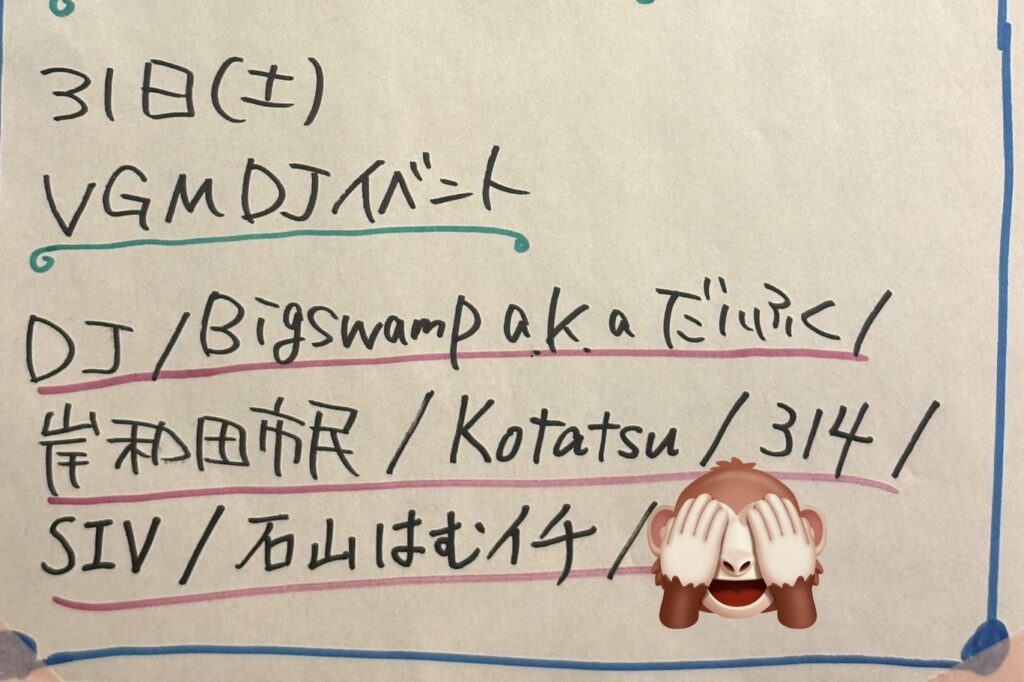 31日(土)
VGM DJイベント
DJ/Bigswamp a.k.a だいふく/
岸和田市民/Kotatsu/314/
SIV/石山はむイチ/